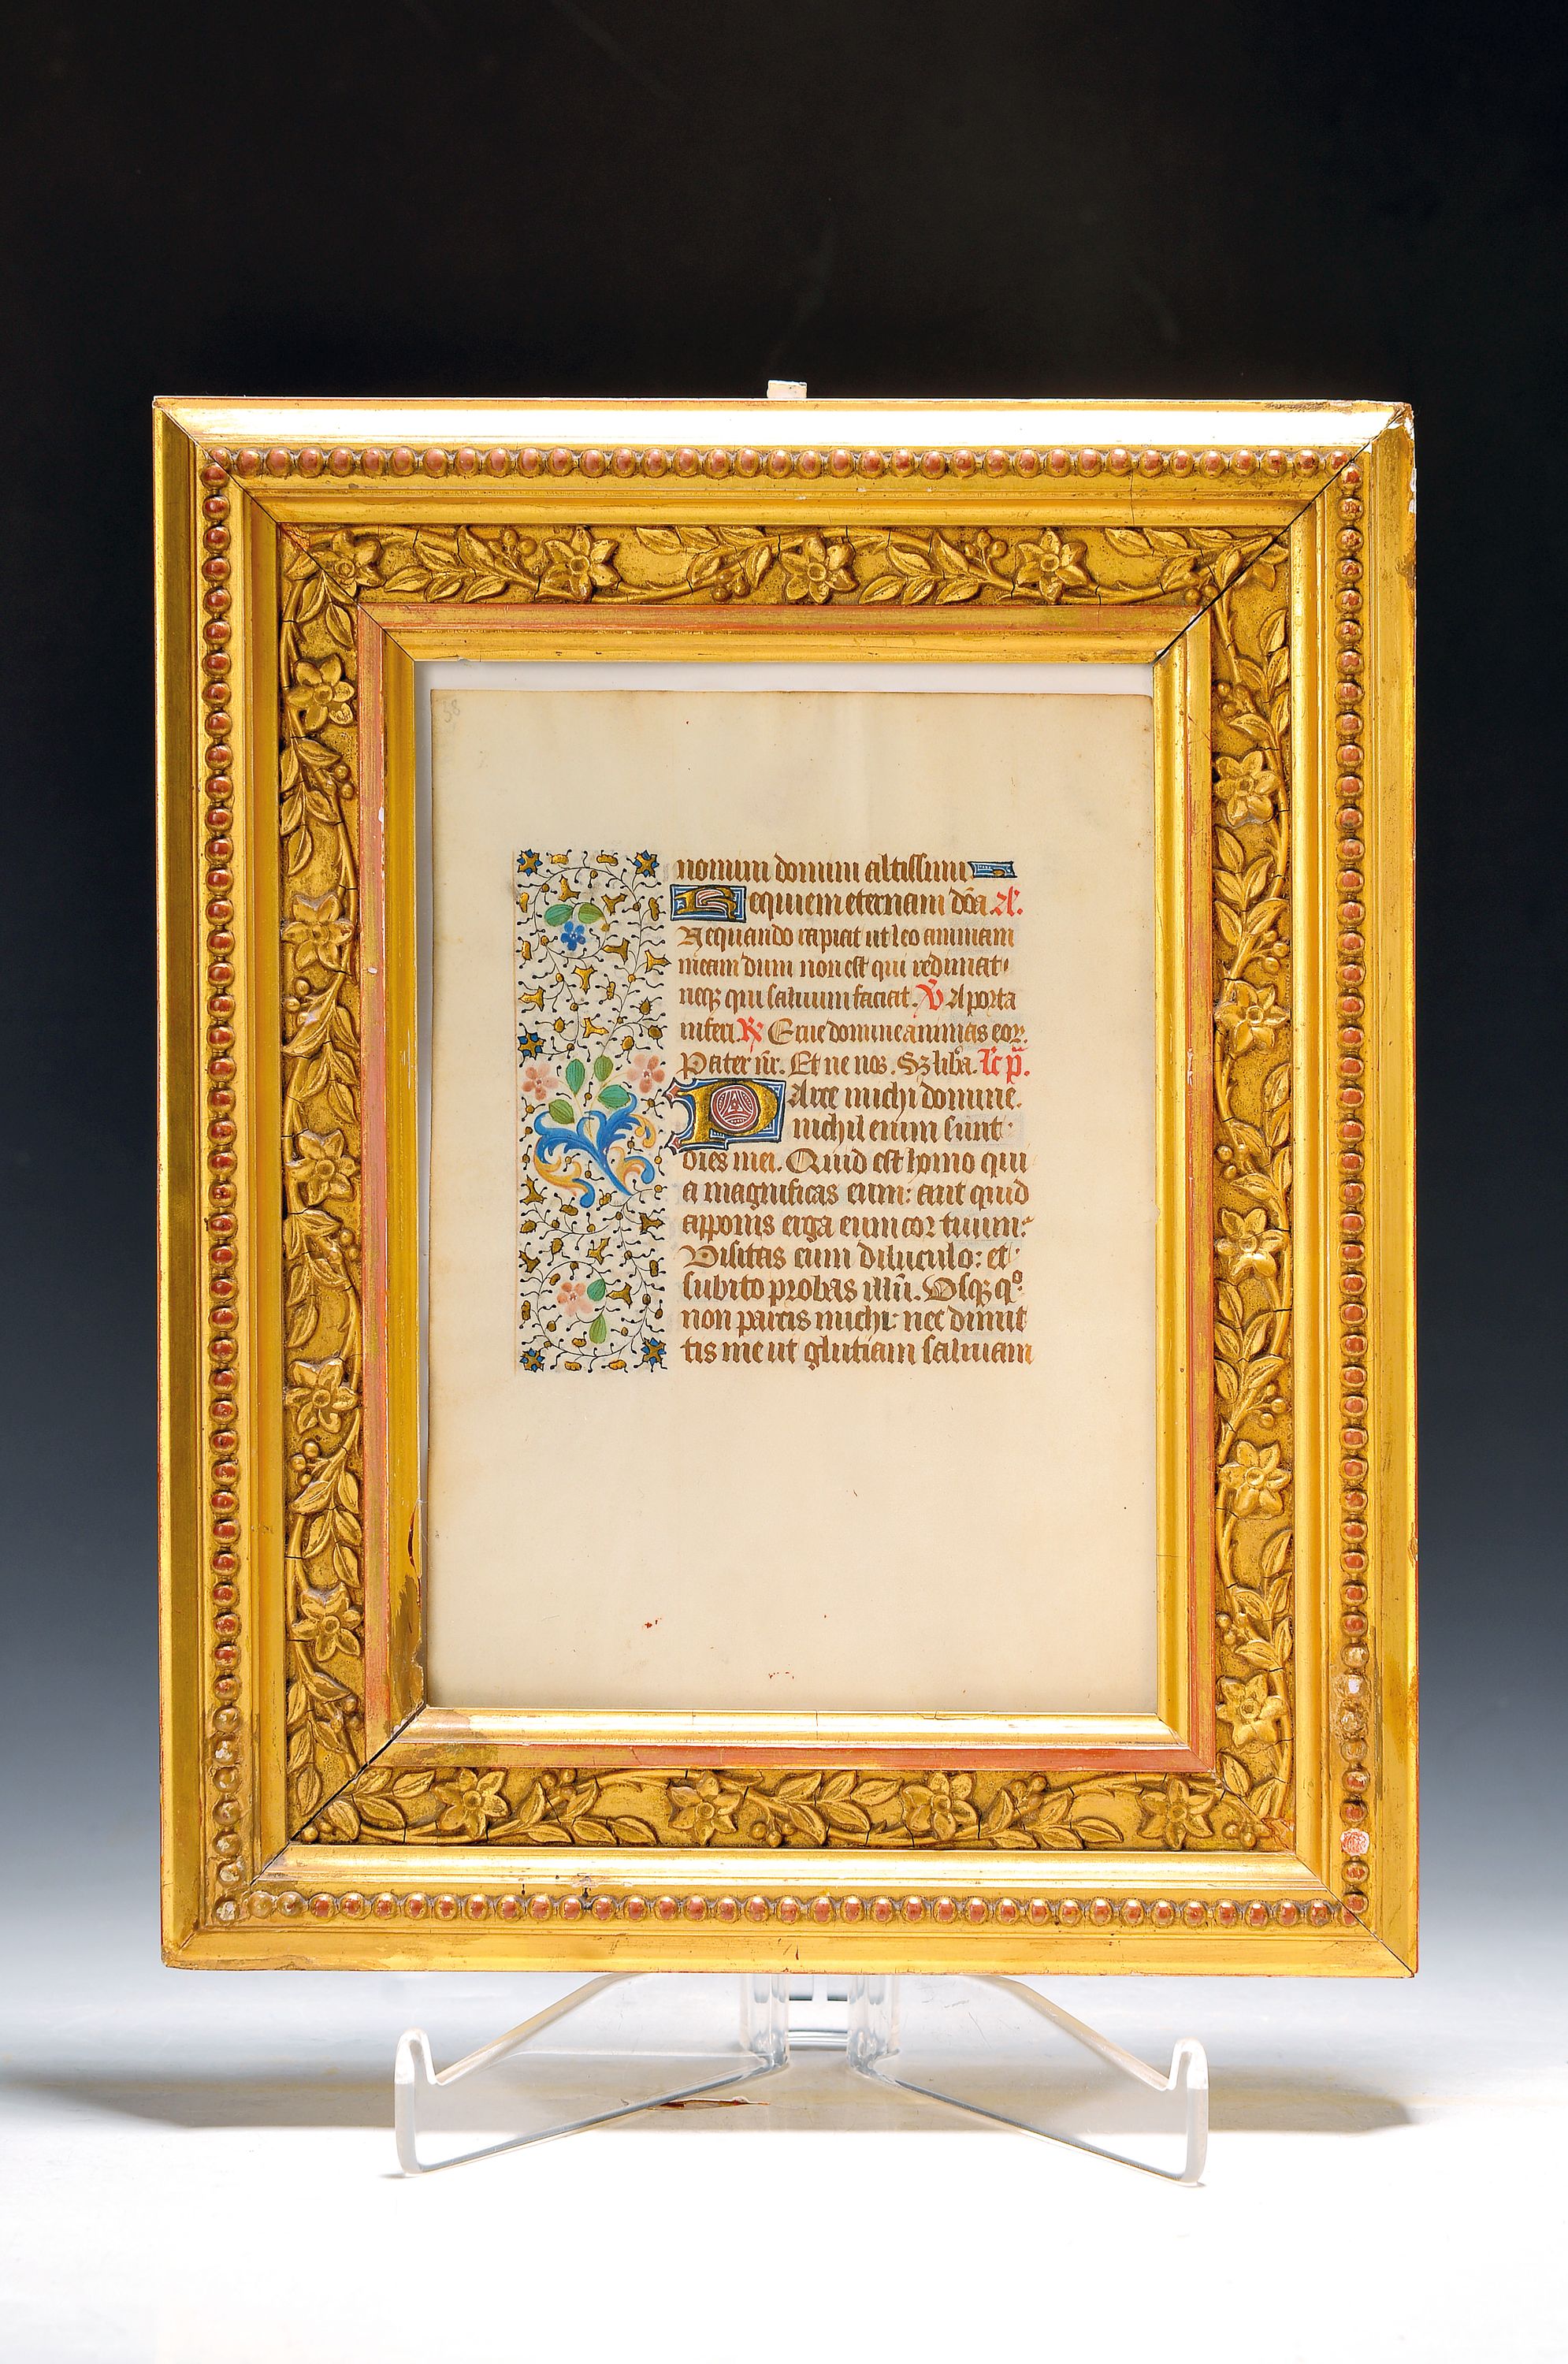 58
nomini domini altissimi
Requiem eternam dn̄a. A͞.
Nequando rapiat ut leo animam
meam dum non est qui redimat
neqꝫ qui saluum faciat. V̄ A porta
inferi. ℟ Erue domine animas eoꝝ.
Pater nr̄. Et ne nos. Sꝫ lib̄a. Lc̄ p̄.
Parce michi domine.
nichil enim sunt
dies mei. Quid est homo qui
a magnificas eum: aut quid
apponis erga eum cor tuum:
Visitas eum diluculo: et
subito probas illū. Vsqꝫ qͦ
non parcis michi: nec dimit
tis me ut glutiam saliuam